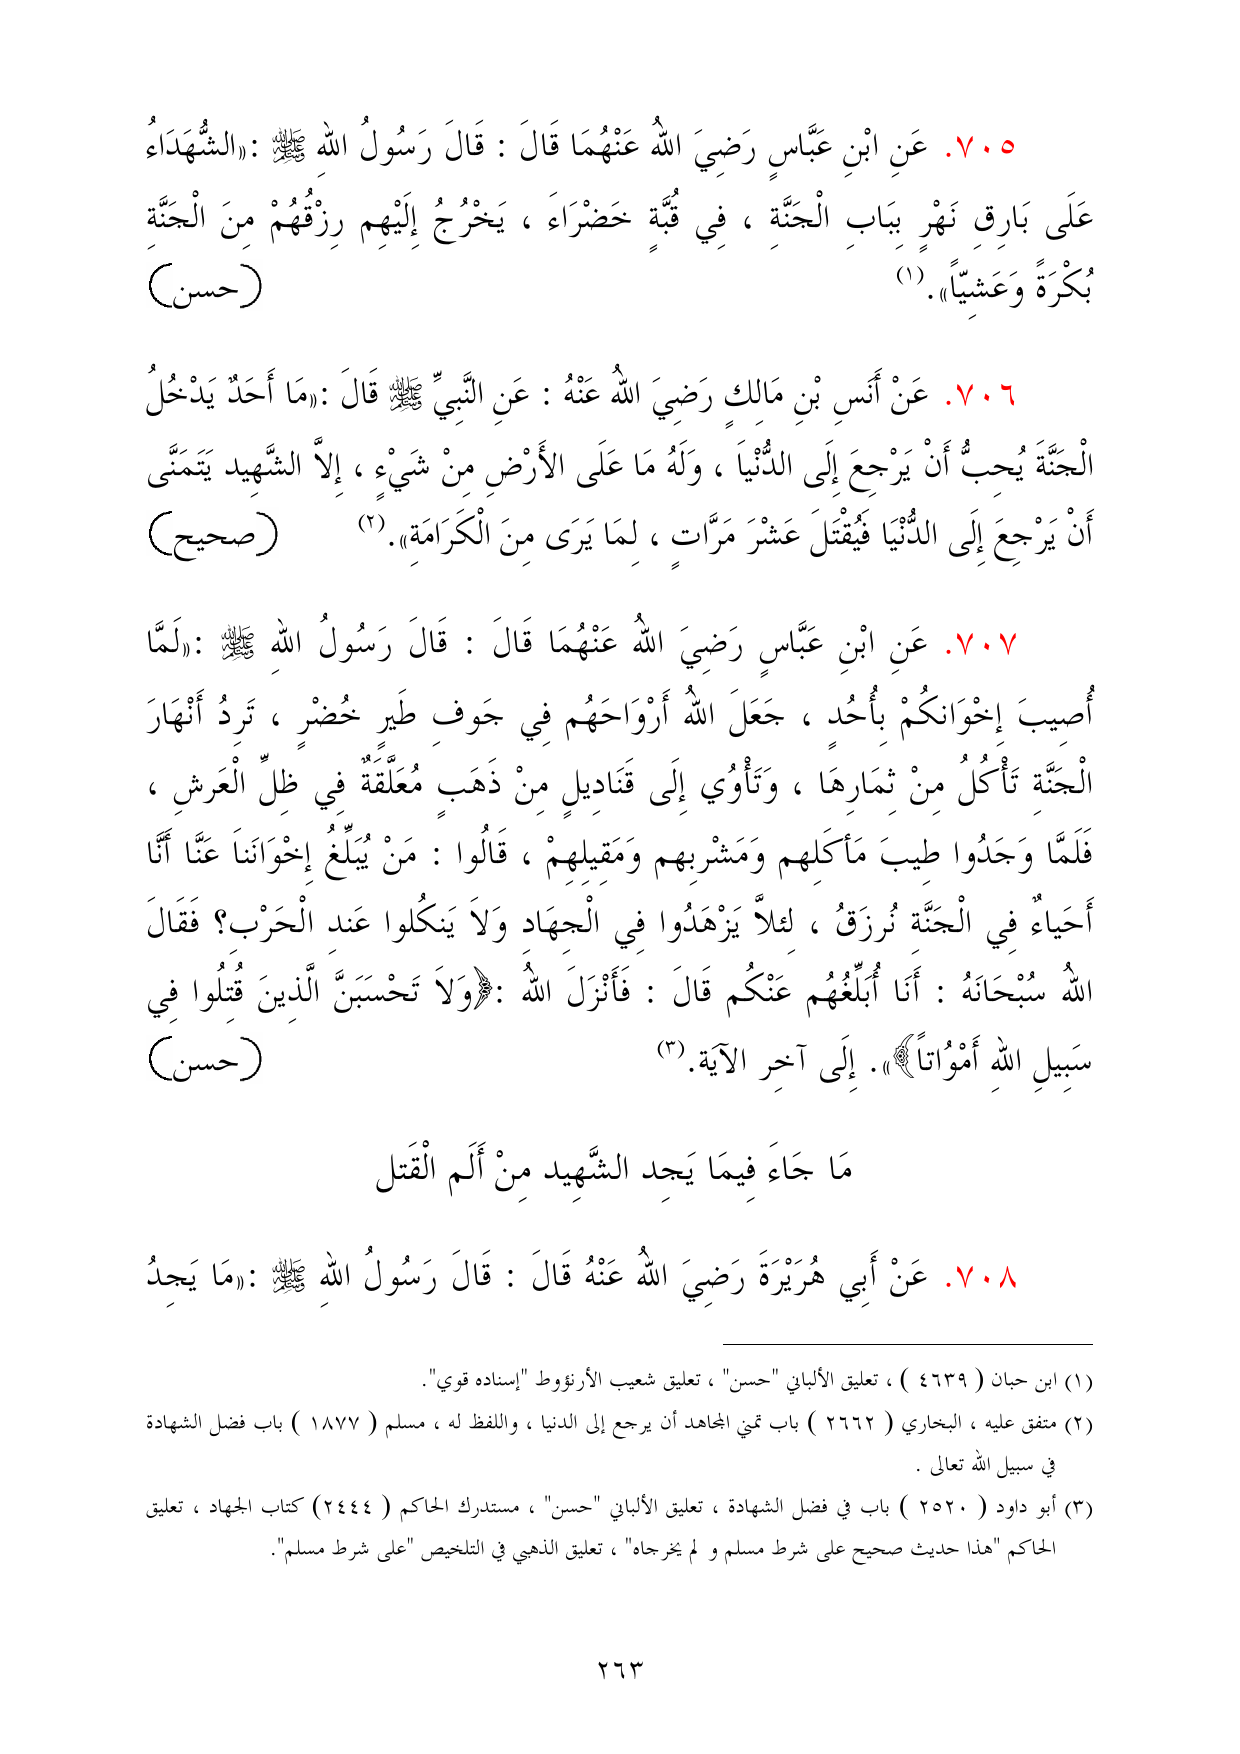 ٧٠٥. عَنِ ابْنِ عَبَّاسٍ رَضِيَ اللهُ عَنْهُمَا قَالَ : قَالَ رَسُولُ اللهِ ﷺ :«الشُّهَدَاءُ
عَلَى بَارِقِ نَهْرٍ بِبَابِ الْجَنَّةِ ، فِي قُبَّةٍ خَضْرَاءَ ، يَخْرُجُ إِلَيْهِم رِزْقُهُمْ مِنَ الْجَنَّةِ
بُكْرَةً وَعَشِيّاً».(١) (حسن)
٧٠٦. عَنْ أَنَسِ بْنِ مَالِكٍ رَضِيَ اللهُ عَنْهُ : عَنِ النَّبِيِّ ﷺ قَالَ :«مَا أَحَدٌ يَدْخُلُ
الْجَنَّةَ يُحِبُّ أَنْ يَرْجِعَ إِلَى الدُّنْياَ ، وَلَهُ مَا عَلَى الأَرْضِ مِنْ شَيْءٍ ، إِلاَّ الشَّهِيد يَتَمَنَّى
أَنْ يَرْجِعَ إِلَى الدُّنْيَا فَيُقْتَلَ عَشْرَ مَرَّاتٍ ، لِمَا يَرَى مِنَ الْكَرَامَةِ».(٢) (صحيح)
٧٠٧. عَنِ ابْنِ عَبَّاسٍ رَضِيَ اللهُ عَنْهُمَا قَالَ : قَالَ رَسُولُ اللهِ ﷺ :«لَمَّا
أُصِيبَ إِخْوَانكُمْ بِأُحُدٍ ، جَعَلَ اللهُ أَرْوَاحَهُم فِي جَوفِ طَيرٍ خُضْرٍ ، تَرِدُ أَنْهَارَ
الْجَنَّةِ تَأْكُلُ مِنْ ثِمَارِهَا ، وَتَأْوُي إِلَى قَنَادِيلٍ مِنْ ذَهَبٍ مُعَلَّقَةٌ فِي ظِلِّ الْعَرشِ ،
فَلَمَّا وَجَدُوا طِيبَ مَأكَلِهم وَمَشْرِبهم وَمَقِيلِهِمْ ، قَالُوا : مَنْ يُبَلِّغُ إِخْوَانَناَ عَنَّا أَنَّا
أَحَياءٌ فِي الْجَنَّةِ نُرزَقُ ، لِئلاَّ يَزْهَدُوا فِي الْجِهَادِ وَلاَ يَنكُلوا عَندِ الْحَرْبِ؟ فَقَالَ
اللهُ سُبْحَانَهُ : أَنَا أُبَلِّغُهُم عَنْكُم قَالَ : فَأَنْزَلَ اللهُ :﴿وَلاَ تَحْسَبَنَّ الَّذِينَ قُتِلُوا فِي
سَبِيلِ اللهِ أَمْوُاتاً﴾». إِلَى آخِرِ الآيَة.(٣) (حسن)
مَا جَاءَ فِيمَا يَجِد الشَّهِيد مِنْ أَلَمِ الْقَتل
٧٠٨. عَنْ أَبِي هُرَيْرَةَ رَضِيَ اللهُ عَنْهُ قَالَ : قَالَ رَسُولُ اللهِ ﷺ :«مَا يَجِدُ
(١) ابن حبان ( ٤٦٣٩ ) ، تعليق الألباني "حسن" ، تعليق شعيب الأرنؤوط "إسناده قوي".
(٢) متفق عليه ، البخاري ( ٢٦٦٢ ) باب تمني المجاهد أن يرجع إلى الدنيا ، واللفظ له ، مسلم ( ١٨٧٧ ) باب فضل الشهادة
في سبيل الله تعالى .
(٣) أبو داود ( ٢٥٢٠ ) باب في فضل الشهادة ، تعليق الألباني "حسن" ، مستدرك الحاكم ( ٢٤٤٤) كتاب الجهاد ، تعليق
الحاكم "هذا حديث صحيح على شرط مسلم و لم يخرجاه" ، تعليق الذهبي في التلخيص "على شرط مسلم".
٢٦٣